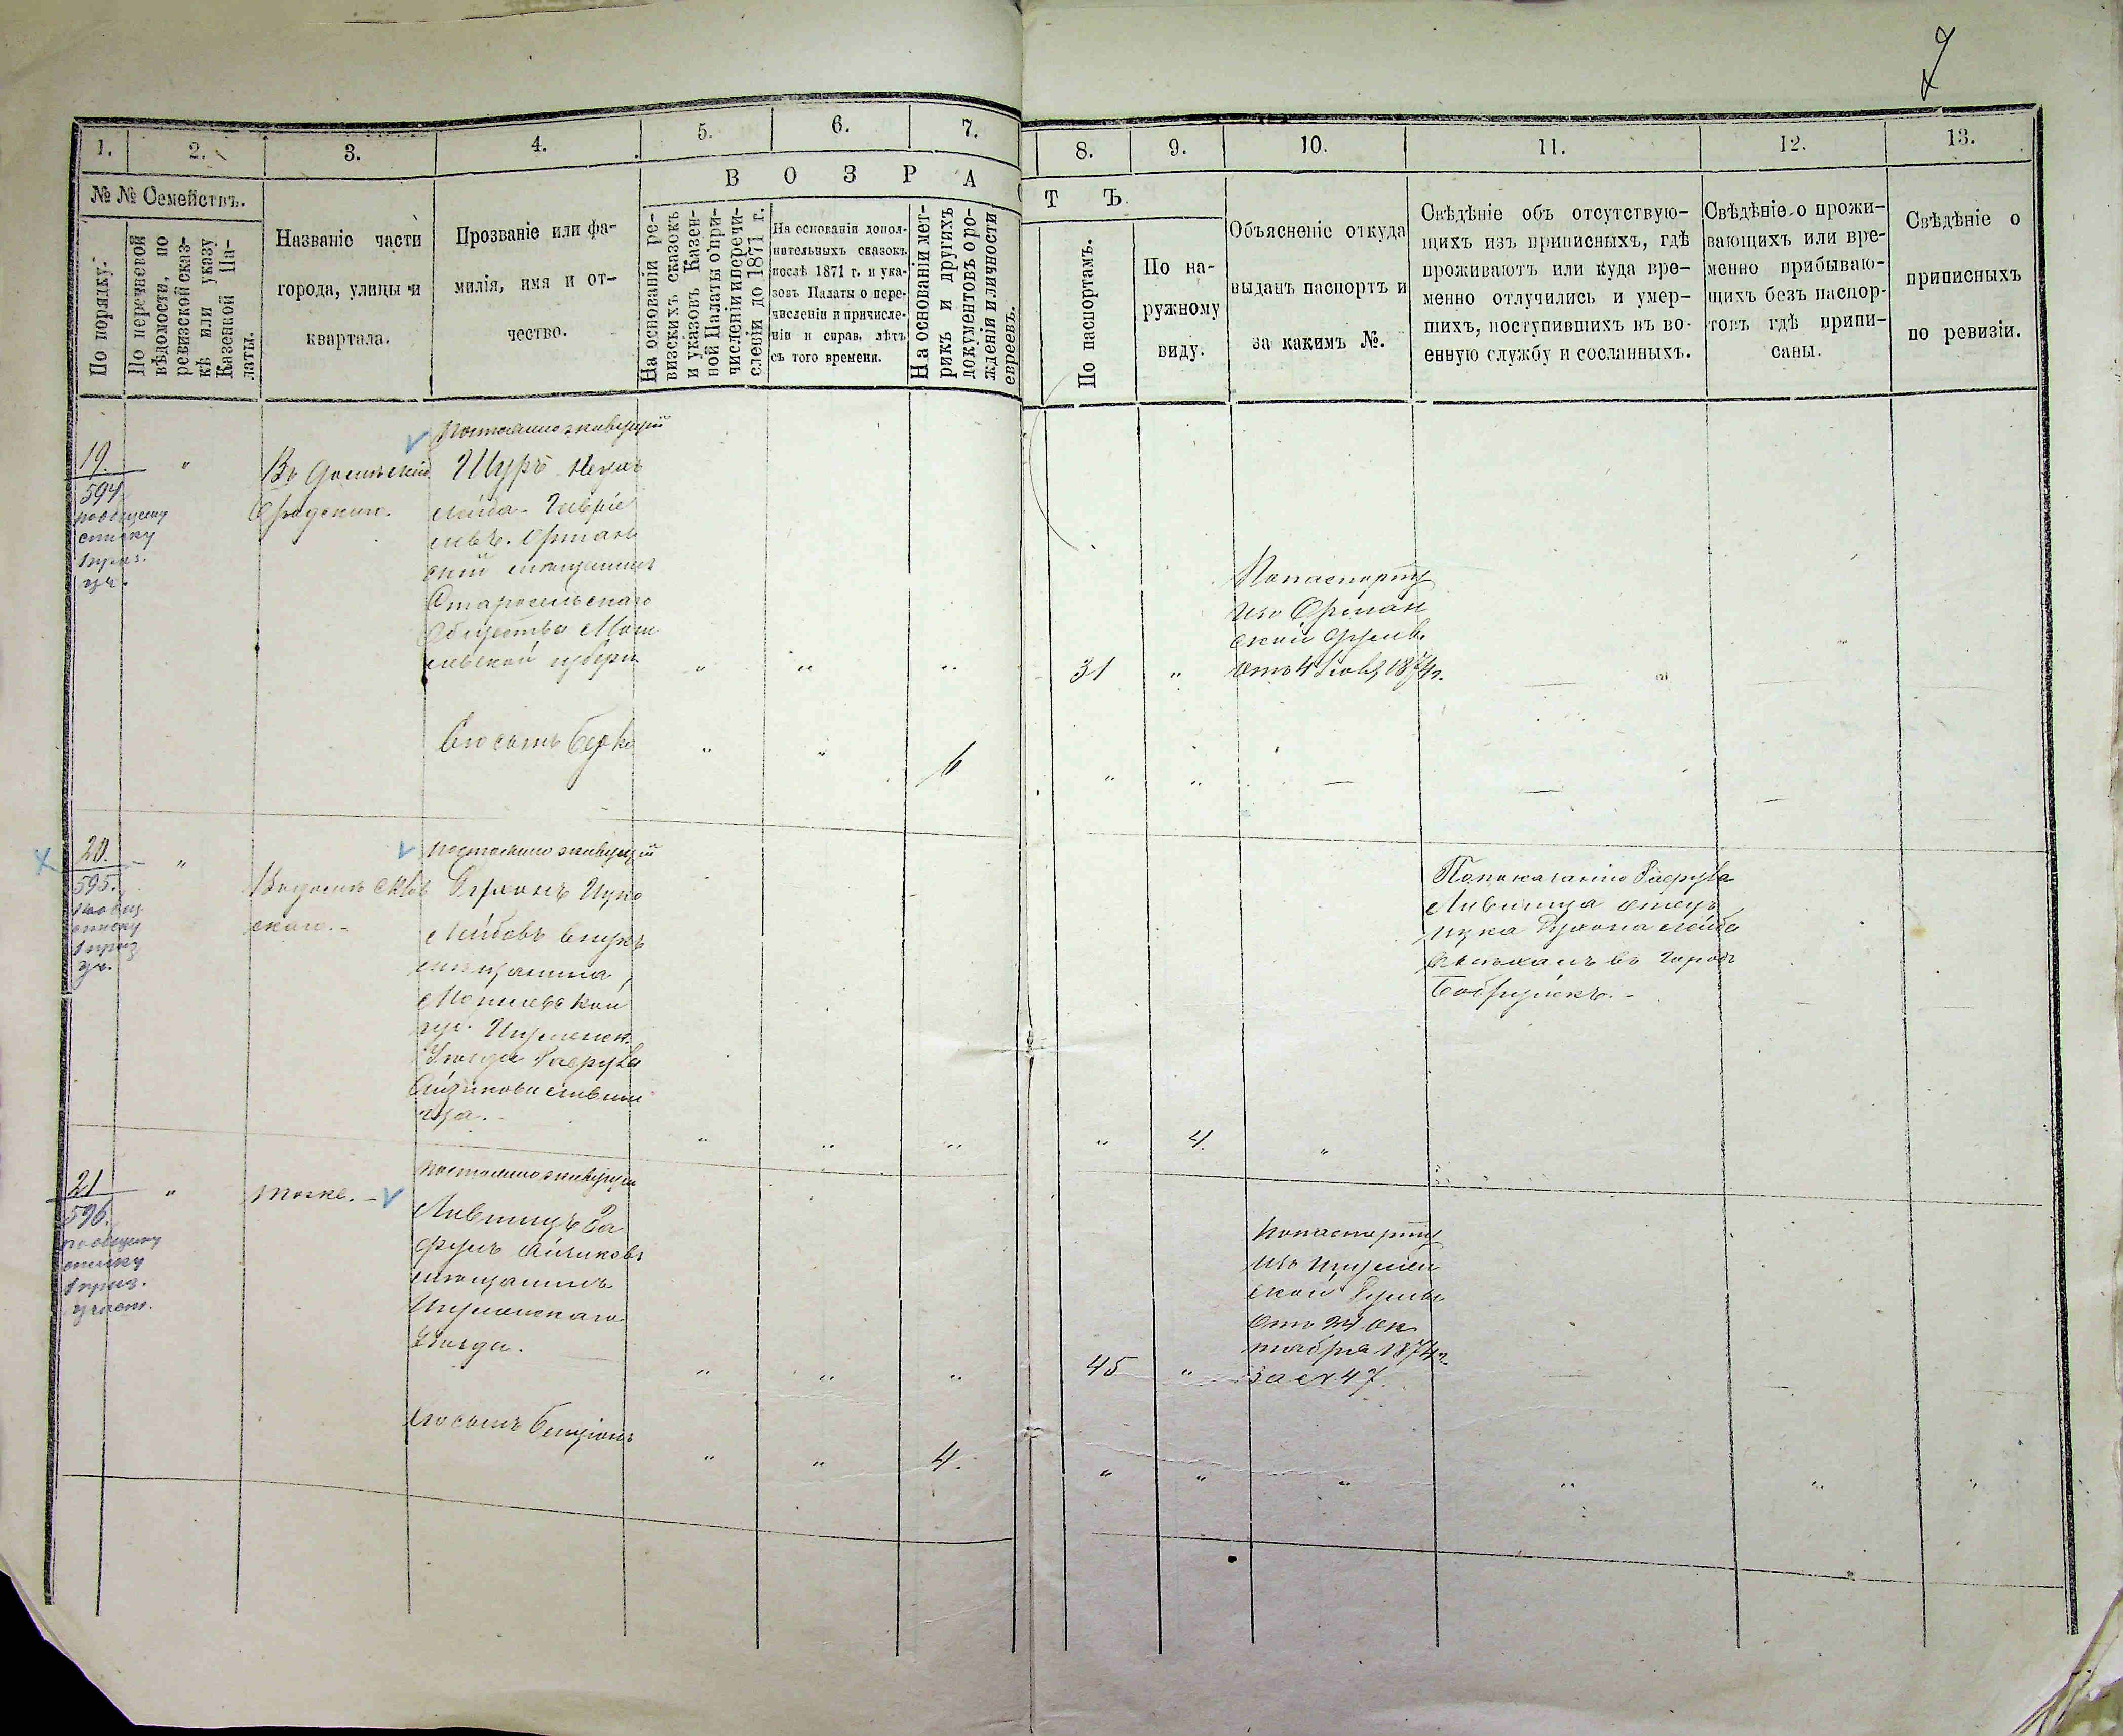 7
1. 2. 3. 4. 5. 6. 7. 8. 9. 10. 11. 12. 13.
№ № Семействъ.
По порядку.
По перечневой
вѣдомости, по
ревизской сказ-
кѣ или указу
Казенной Па-
латы.
Названіе части
города, улицы и
квартала.
Прозваніе или фа-
милія, имя и от-
чество.
В О З Р А С Т Ъ.
На основаніи ре-
визскихъ сказокъ
и указовъ Казен-
ной Палаты о при-
численіи и перечи-
сленіи до 1871 г.
На основаніи допол-
нительныхъ сказокъ
послѣ 1871 г. и ука-
зовъ Палаты о пере-
численіи и причисле-
ніи и справ. лѣтъ
съ того времени.
На основаніи мет-
рикъ и другихъ
документовъ о ро-
жденіи и личности
евреевъ.
По паспортамъ.
По на-
ружному
виду.
Объясненіе откуда
выданъ паспортъ и
за какимъ №.
Свѣдѣніе объ отсутствую-
щихъ изъ приписныхъ, гдѣ
проживаютъ или куда вре-
менно отлучились и умер-
шихъ, поступившихъ въ во-
енную службу и сосланныхъ.
Свѣдѣніе о прожи-
вающихъ или вре-
менно прибываю-
щихъ безъ паспор-
товъ гдѣ припи-
саны.
Свѣдѣніе о
приписныхъ
по ревизіи.
19.
594
по общему
списку
1 приз.
уч.
"
Постоянно живущій
Шуръ
Лейба
мѣщанинъ
Старосельскаго
Общества Моги
левской губерн
" " "
31 "
По паспорту
изъ Оршан
ской
отъ 4 1874 г.
Его сынъ Берко
" " 6 " " — — —
20.
595.
по общ.
списку
1 приз
уч.
"
Постоянно живущій
Лейбовъ внукъ
мѣщанина,
Могилевской
гу. Игуменск.
Уѣзда
" " " " 4. "
По показанію
Лившица отецъ
въ городъ
Бобруйскъ. -
21
596.
по общему
списку
1 приз.
участ.
" тоже. -
Постоянно живущій
Лившицъ
мѣщанинъ
Игуменскаго
Уѣзда.
" " " 45 "
По паспорту
изъ Игумен
ской Думы
отъ 24 Ок
тября 1874 г.
за № 47.
Его сынъ Бенціонъ
" " 4. " " " " " "